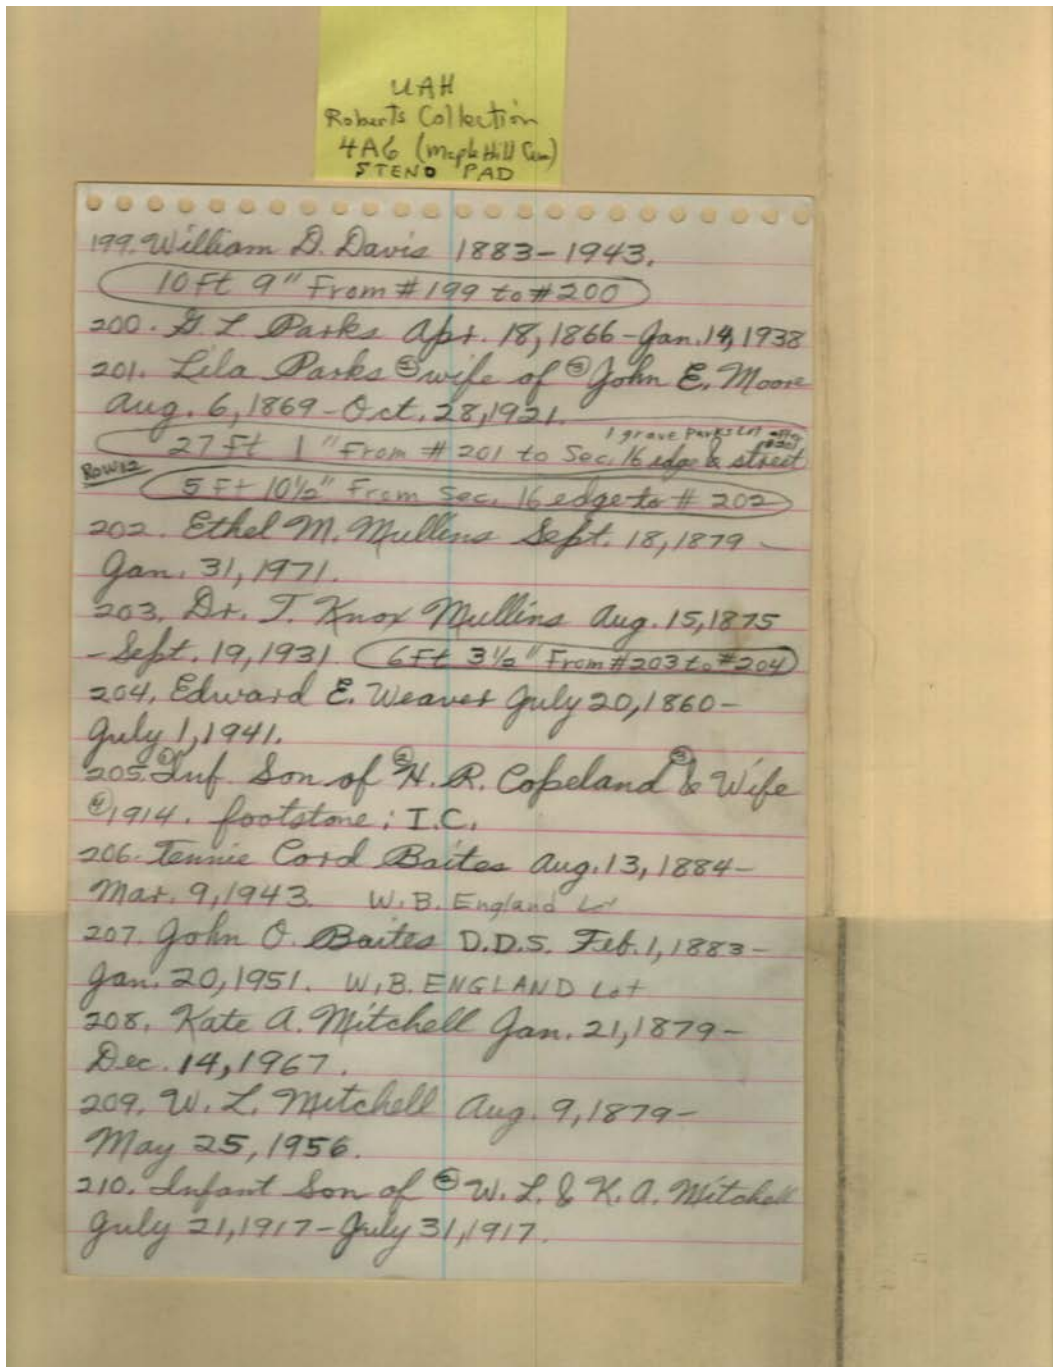 UAH
Roberts Collection
4A6 (Maple Hill Cem)
STENO PAD
199. William D. Davis 1883-1943.
10 Ft 9" From #199 to #200
200. G. L. Parks Apr. 18, 1866-Jan. 14, 1938
201. Lila Parks ② wife of ③ John E. Moore
Aug. 6, 1869-Oct. 28, 1921.
1 grave Parks
27 Ft 1" From # 201 to Sec. 16 edge & street
Row 12
5 Ft 10½" From Sec. 16 edge to # 202
202. Ethel M. Mullins Sept. 18, 1879 -
Jan. 31, 1971.
203. Dr. T. Knox Mullins Aug. 15, 1875
- Sept. 19, 1931. 6 Ft 3½" From #203 to #204
204. Edward E. Weaver July 20, 1860-
July 1, 1941.
205. ① Inf. Son of ② H. R. Copeland ③ & Wife
④ 1914. footstone: I.C.
206. Tennie Cord Baites Aug. 13, 1884-
Mar. 9, 1943. W. B. England Lot
207. John O. Baites D.D.S. Feb. 1, 1883-
Jan. 20, 1951. W. B. ENGLAND Lot
208. Kate A. Mitchell Jan. 21, 1879-
Dec. 14, 1967.
209. W. L. Mitchell Aug. 9, 1879-
May 25, 1956.
210. Infant Son of ② W. L. & K. A. Mitchell
July 21, 1917-July 31, 1917.